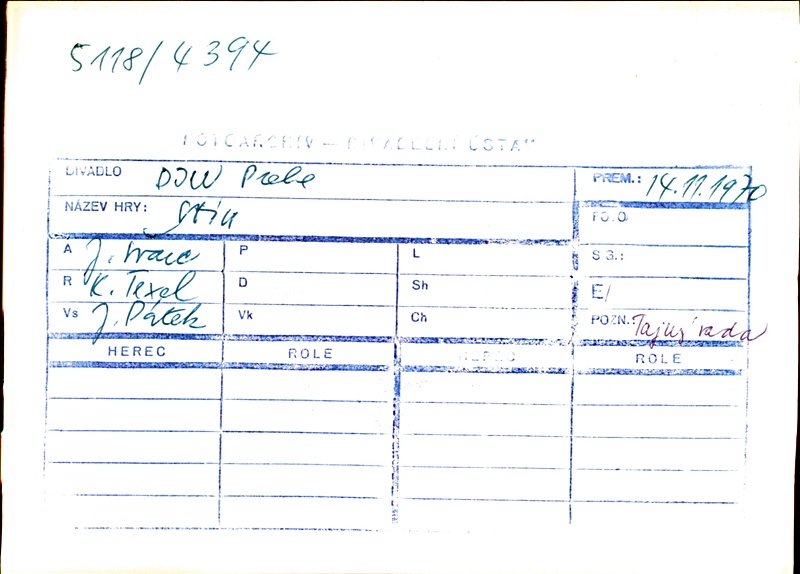 5118/4394
FOTOARCHIV — DIVADELNÍ ÚSTAV
DIVADLO DJW Praha PREM.: 14.11.1970
NÁZEV HRY: Stín FOTO
A P L S G.:
R K. Texel D Sh E/
Vs J. Pátek Vk Ch POZN.: Tajný rada
HEREC ROLE HEREC ROLE